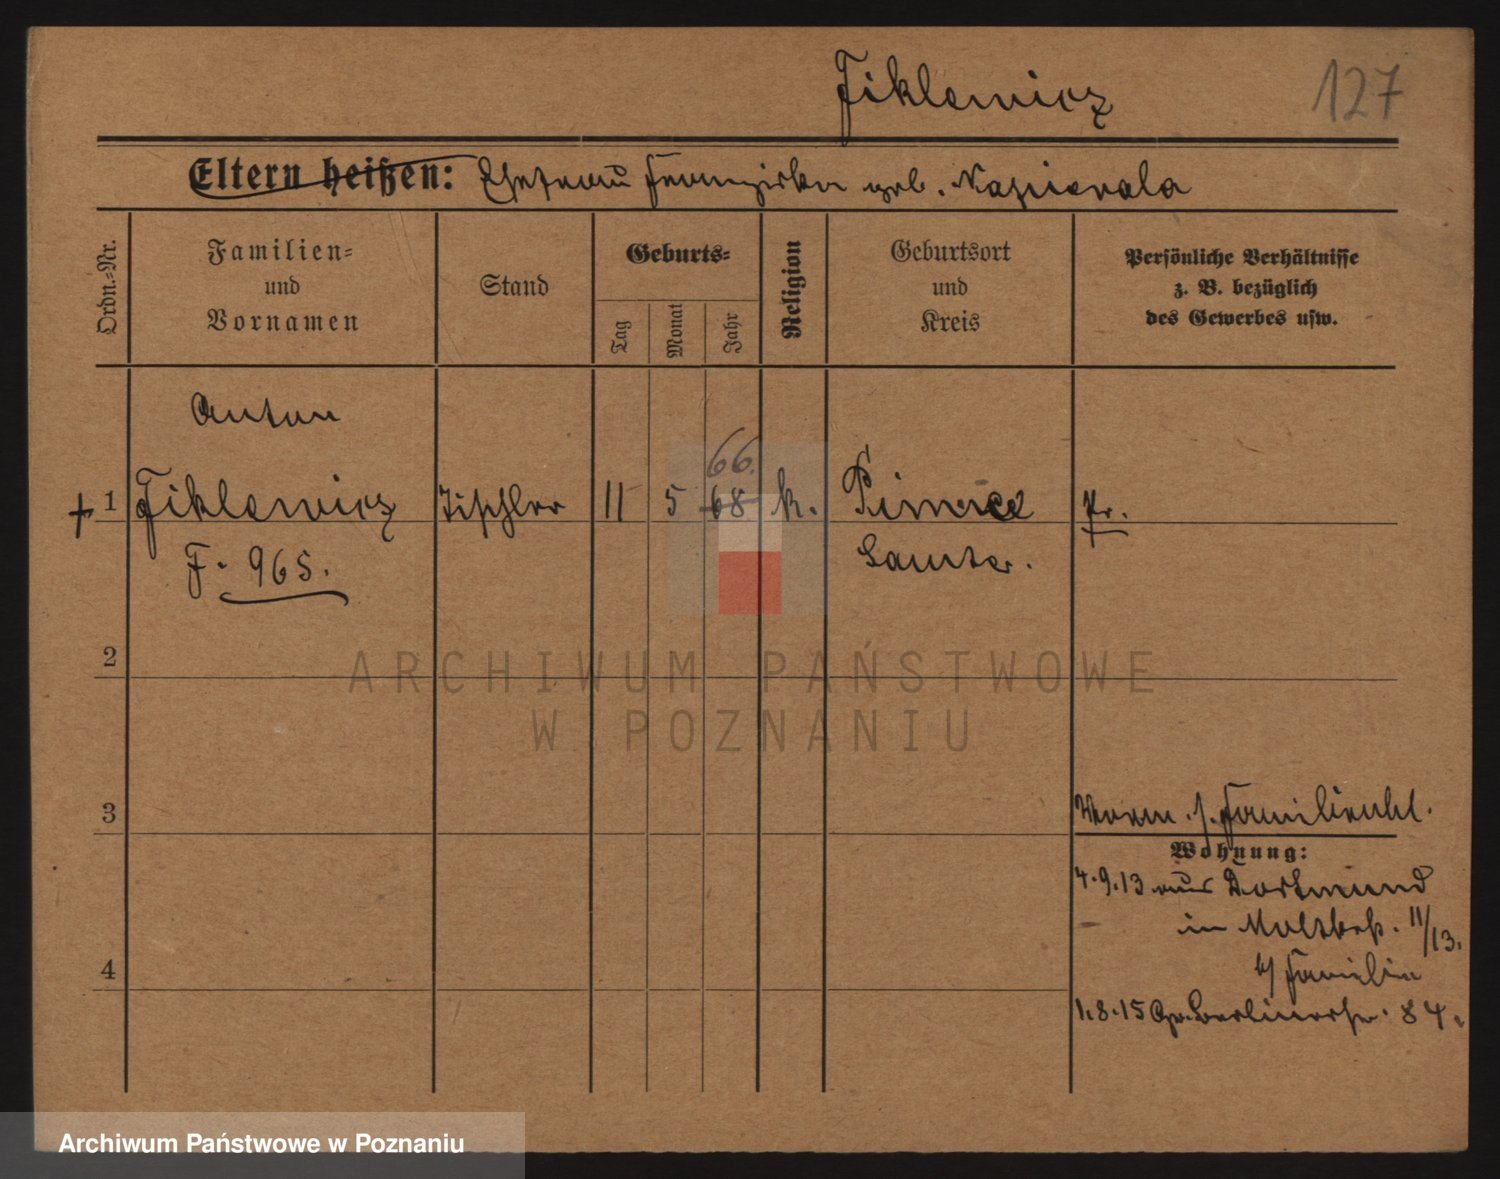 Fiklewicz 127
Eltern heißen: Ehefrau Franziska geb. Napierala
Ordn.-Nr.
Familien-
und
Vornamen
Stand
Geburts-
Tag
Monat
Jahr
Religion
Geburtsort
und
Kreis
Persönliche Verhältnisse
z. B. bezüglich
des Gewerbes usw.
Anton
66.
+ 1 Fiklewicz Tischler 11 5 68 k. Pr.
F. 965. Samter.
2
3 Verm. s. Familienbl.
Wohnung:
4.9.13 aus Dortmund
in Moltkestr. 11/13.
b/ Familie
4
1.8.15 Gr. Berlinerstr. 84.
ARCHIWUM PAŃSTWOWE
W POZNANIU
Archiwum Państwowe w Poznaniu